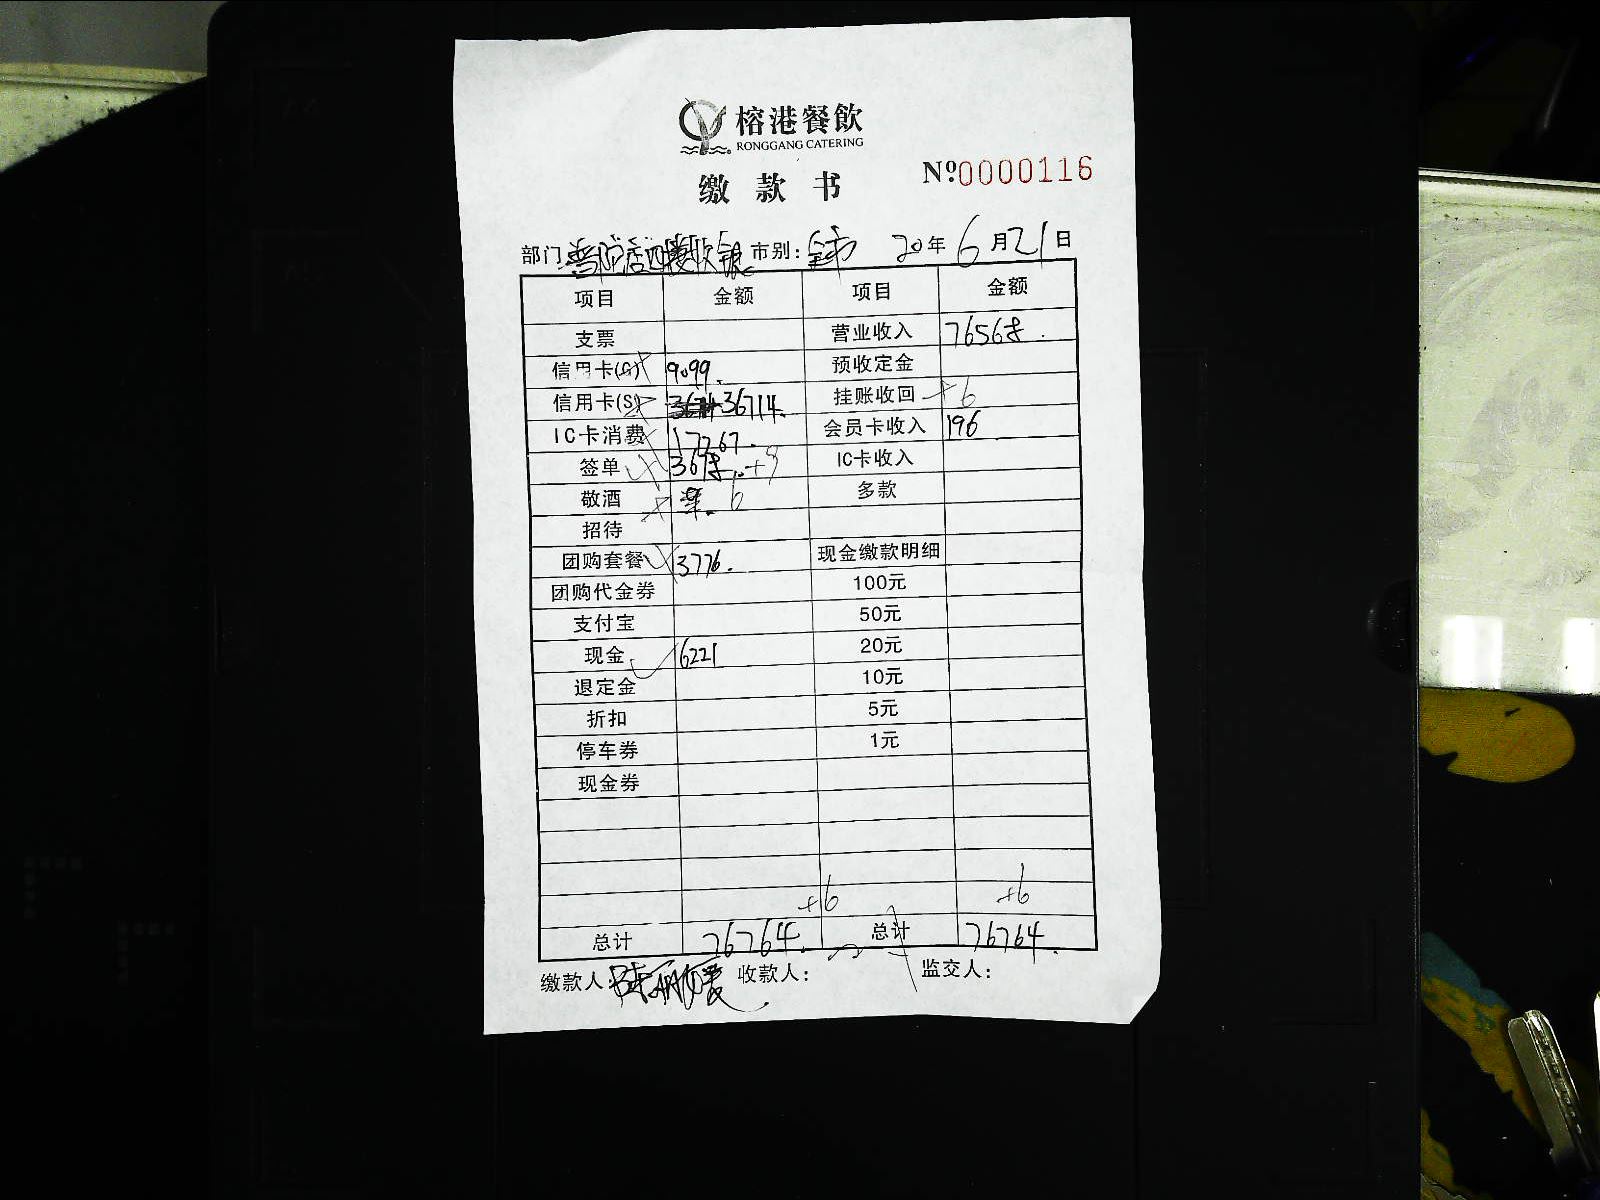 榕港餐飲
RONGGANG CATERING
缴款书
Nº0000116
部门 市别: 全市 20年6月21日
项目 金额 项目 金额
支票 营业收入 76568.
信用卡(G) 9099. 预收定金
信用卡(S) 36714. 挂账收回 +6
IC卡消费 17267. 会员卡收入 196
签单 +9 IC卡收入
敬酒 6 多款
招待
团购套餐 3776. 现金缴款明细
团购代金券 100元
支付宝 50元
现金 6221 20元
退定金 10元
折扣 5元
停车券 1元
现金券
+6 +6
总计 76764. 总计 76764.
缴款人: 收款人: 监交人: